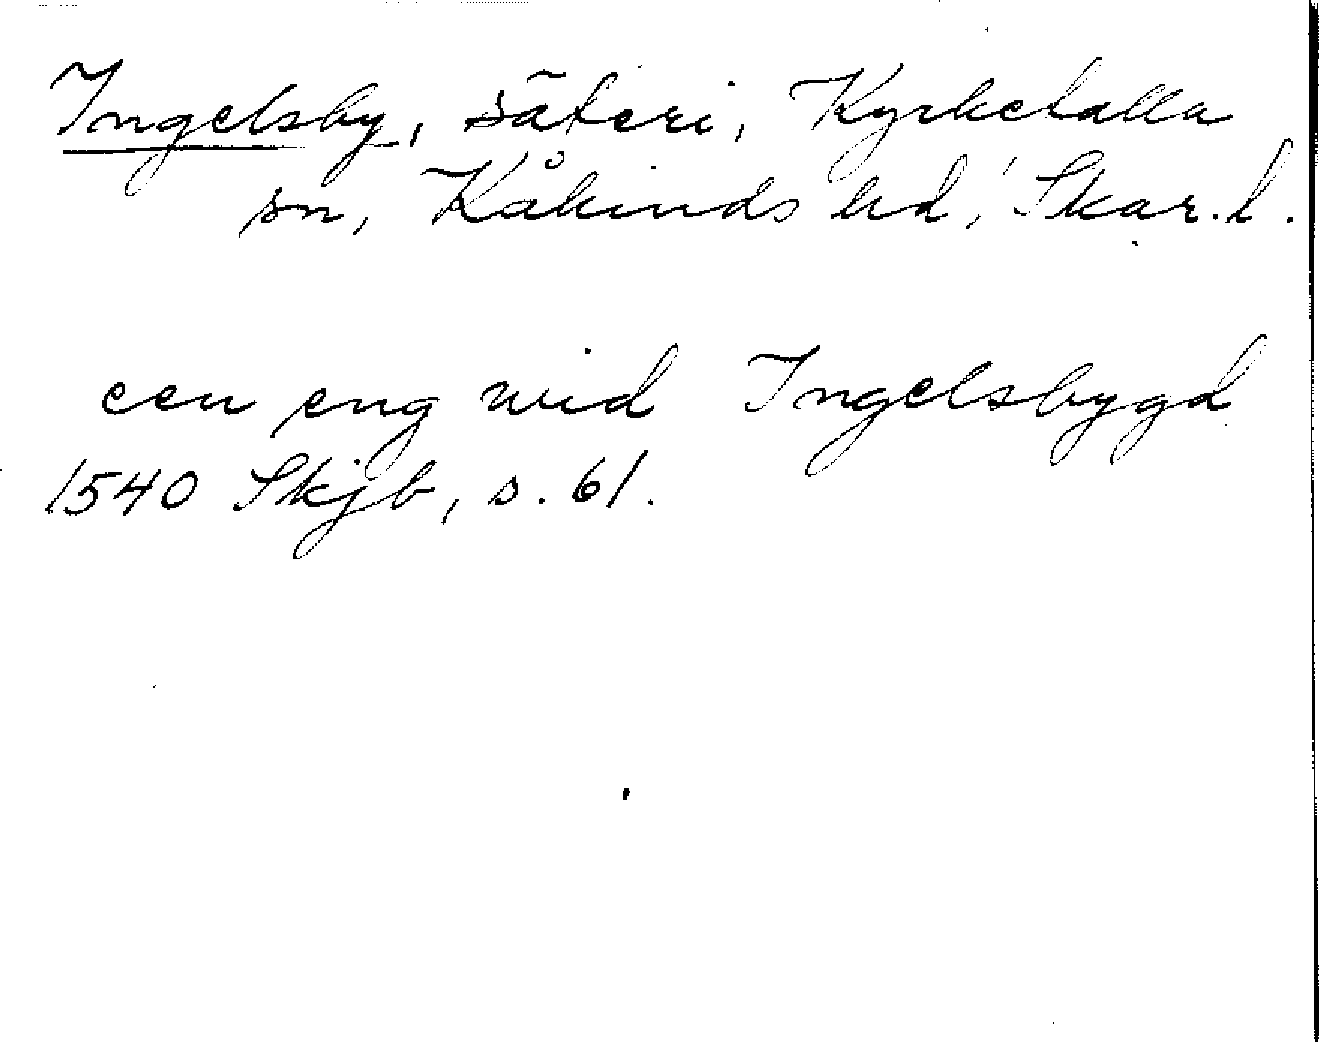 Ingelsby, säteri, Kyrkefalla
sn, Kåkinds hd, Skar. l.
een eng wid Ingelsbygd
1540 Skjb, s. 61.